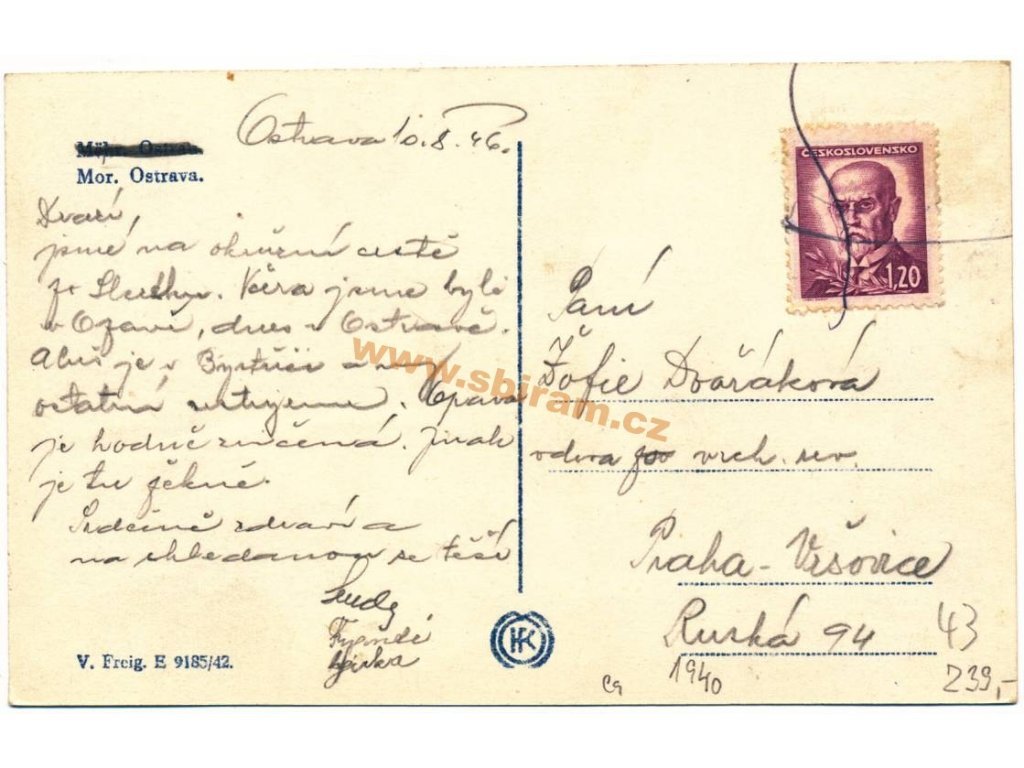 Ostrava 10.8.46.
Mähr. Ostrau.
Mor. Ostrava.
Drazí,
jsme na okružní cestě
ze Včera jsme byli
v Opavě, dnes v Ostravě.
je v Bystřici a my
ostatní Opava
je hodně zničená. Jinak
je tu pěkně.
Srdečně zdraví a
na shledanou se těší
Jirka
V. Freig. E 9185/42.
HFK
ČESKOSLOVENSKO
1,20
Paní
Žofie Dvořáková
vdova vrch.
Praha-Vršovice
Ruská 94
43
1940
239,-
www.sbiram.cz